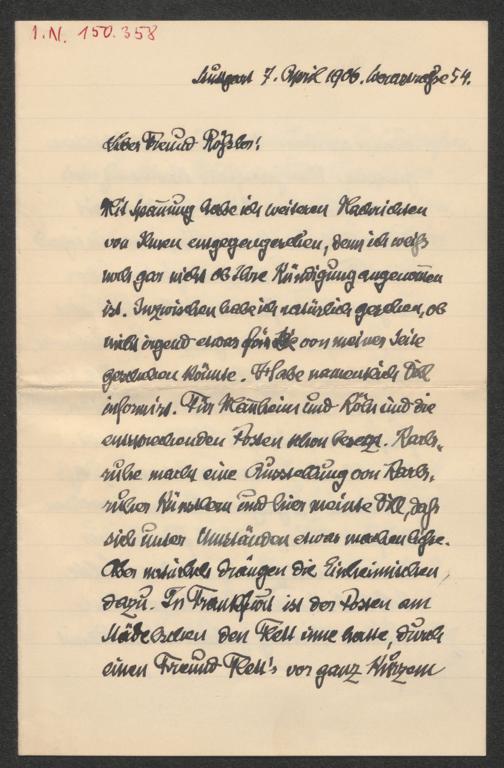 I.N. 150.358
Stuttgart 7. April 1906. Werastraße 54.
Lieber Freund Rößler!
Mit Spannung habe ich weiteren Nachrichten
von Ihnen entgegengesehen, denn ich weiß
noch gar nicht ob Ihre Kündigung angenommen
ist. Inzwischen habe ich natürlich gesehen, ob
nicht irgend etwas für Sie von meiner Seite
geschehen könnte. Habe namentlich Dill
informirt. Für Mannheim und Köln sind die
entsprechenden Posten schon besetzt. Karls-
ruhe macht eine Ausstellung von Karls-
ruher Künstlern und hier meinte Dill, daß
sich unter Umständen etwas machen ließe.
Aber natürlich drängen die Einheimischen
dazu. In Frankfurt ist der Posten am
Städelschen den Flett inne hatte, durch
einen Freund Flett's vor ganz Kurzem